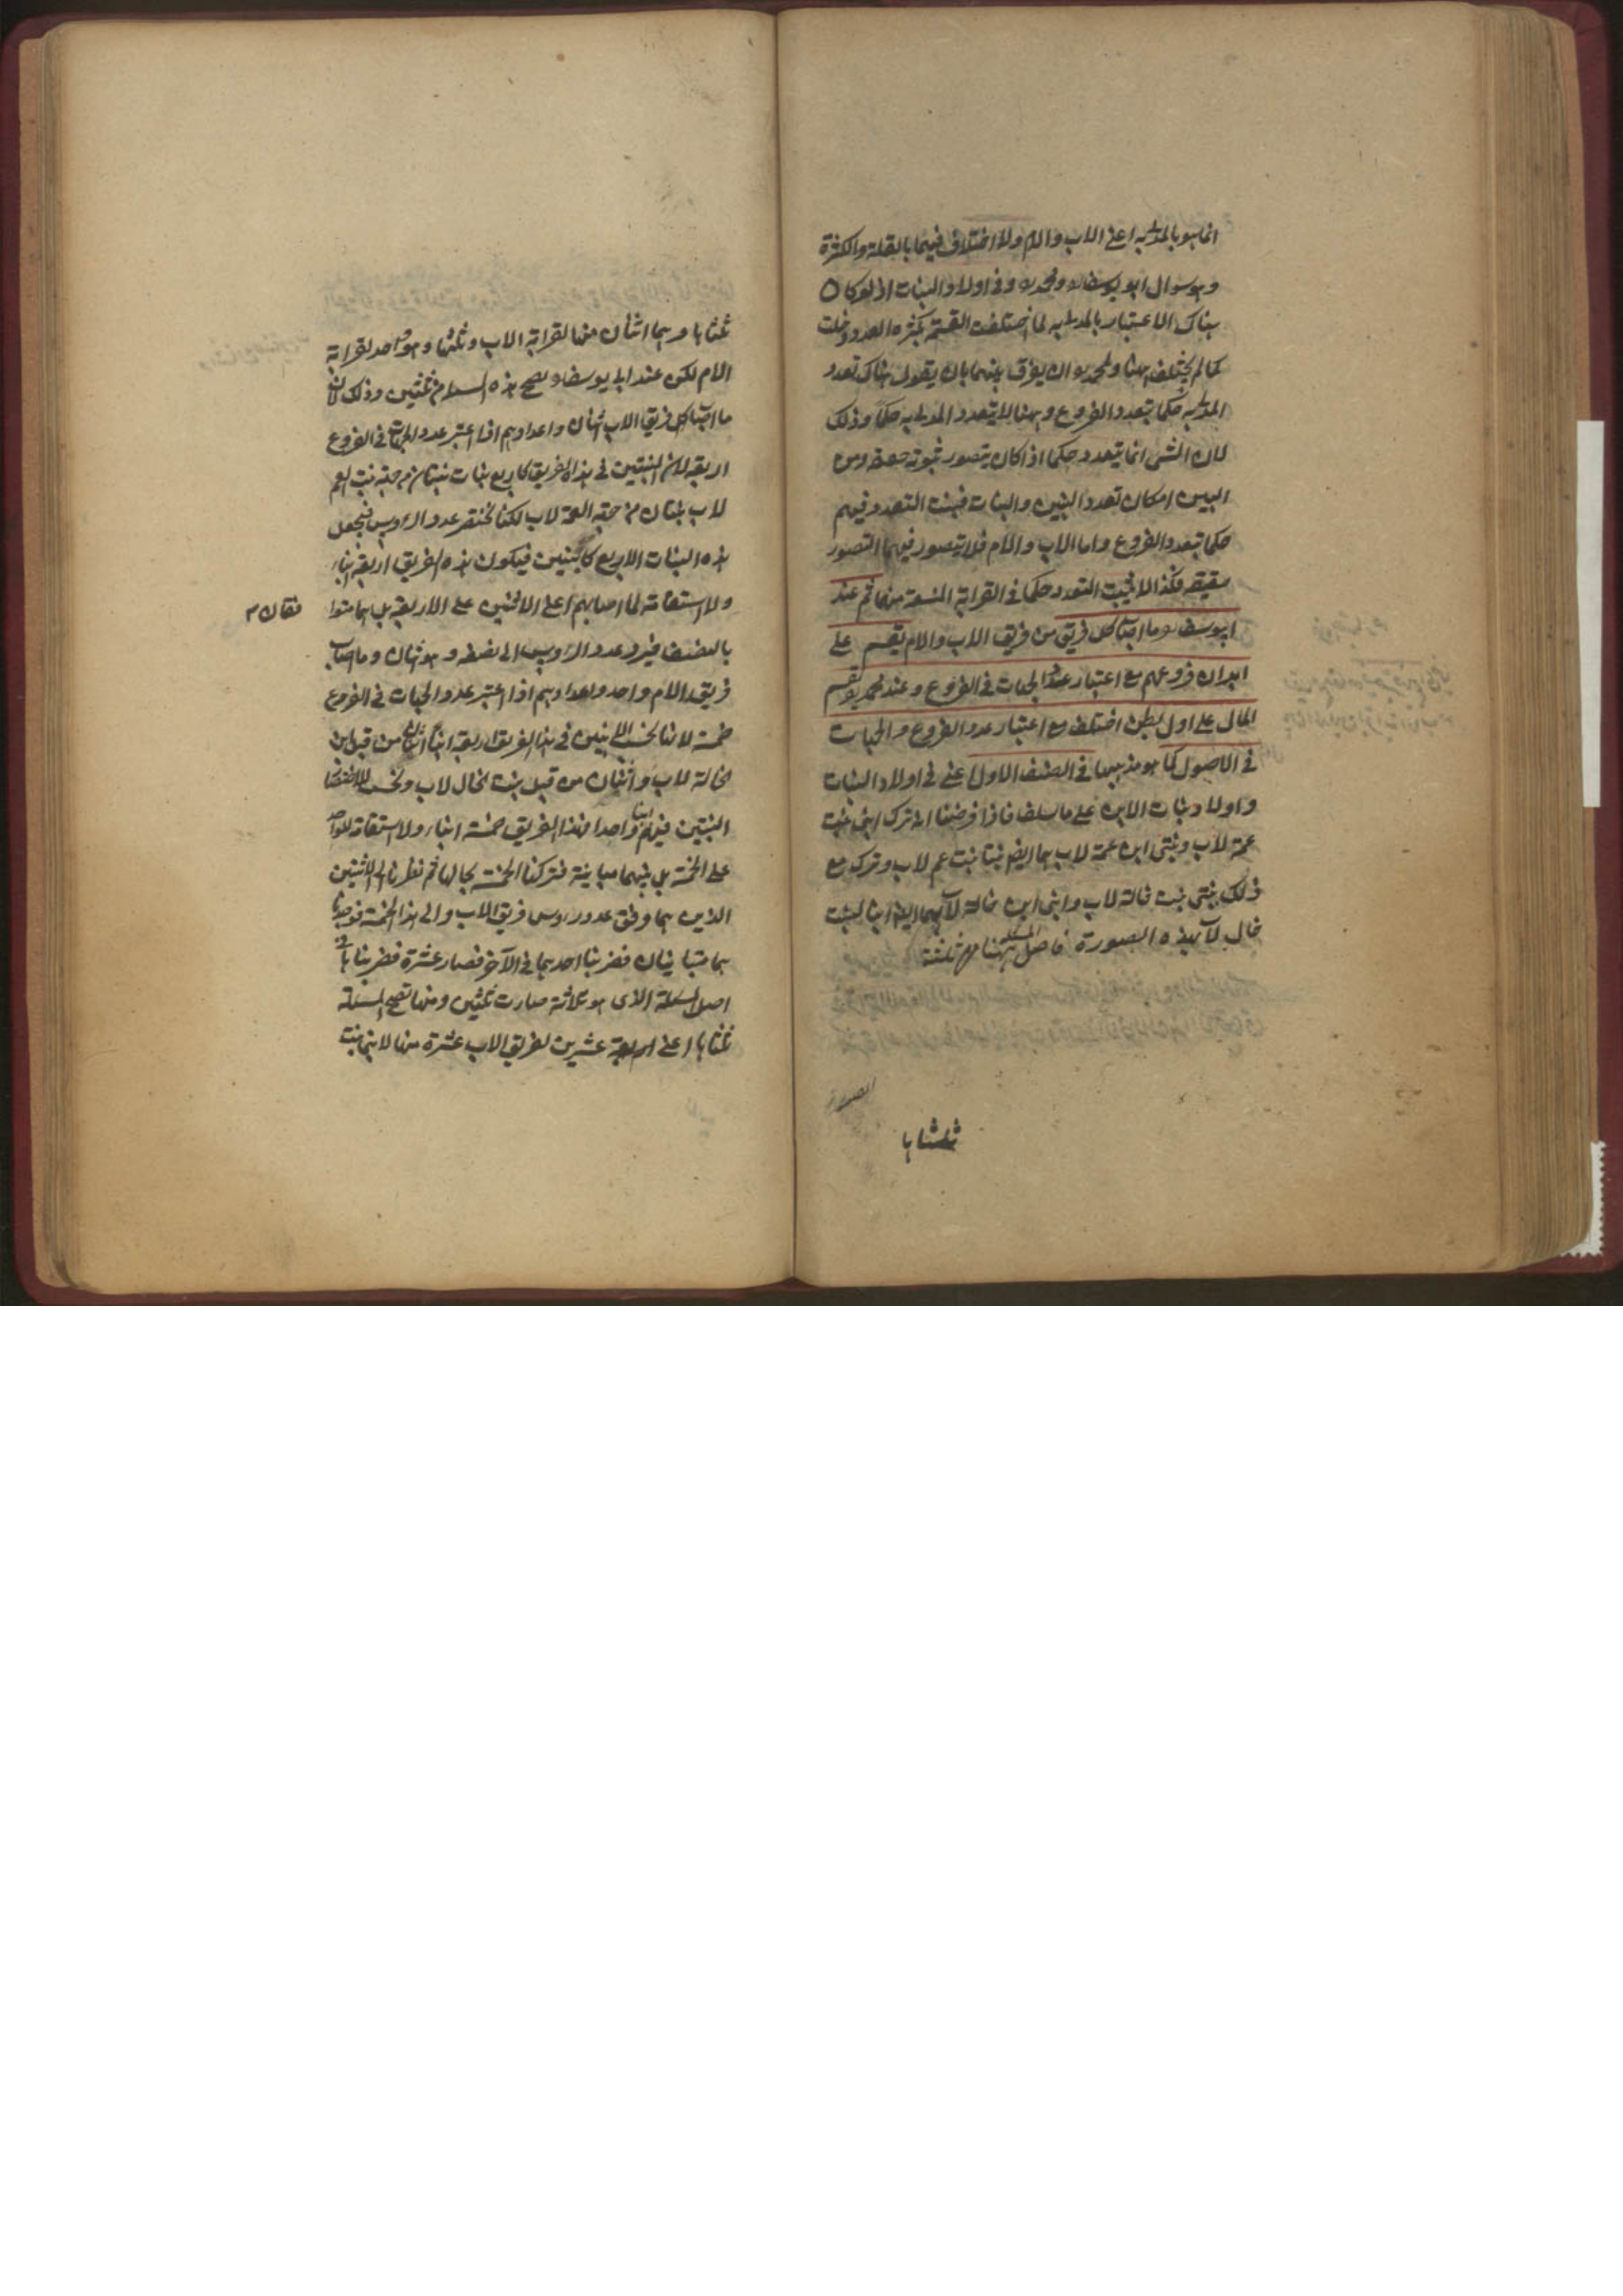 انما هو بالمدلى به اعنى الاب والام ولا اختلاف فيهما بالقلة والكثرة
وهو سوال ابو يوسف ومحمد وفى اولاد البنات اذ لو كان
هناك الاعتبار بالمدلى به لما اختلفت القسمة بكثرة العدد وقلت
كما لم يختلف ههنا ولمحمد ان يفرق بينهما بان يقول هناك تعدد
المدلى به حكما بتعدد الفروع وههنا لا يتعدد المدلى به حكما وذلك
لان الشى انما يتعدد حكما اذا كان يتصور ثبوته حقيقة ومن
البين امكان تعدد البنين والبنات فيثبت التعدد فيهم
حكما بتعدد الفروع واما الاب والام فلا يتصور فيهما التصور
حقيقة فكذا لا يثبت التعدد حكما فى القرابة المتسعة منهما ثم عند
ابيوسف وما اصاب كل فريق من فريق الاب والام يقسم على
ابدان فروعهم مع اعتبار عدد الجهات فى الفروع وعند محمد يقسم
المال على اول بطن اختلف مع اعتبار عدد الفروع والجهات
فى الاصول كما هو مذهبهما فى الصنف الاول اعنى فى اولاد البنات
واولاد بنات الابن على ما سلف فاذا فرضنا انه ترك ابنى بنت
عمة لاب وبنتى ابن عمة لاب هما ايضا بنتا بنت عم لاب وترك مع
ذلك بنتى بنت خالة لاب وابنى ابن خالة لاب هما ايضا ابنا لبنت
خال لاب بهذه الصورة فاصل المسئلة ههنا من ثلثة
ثلثاها
ثلثاها وهما اثنان منها لقرابة الاب وثلثها وهو واحد لقرابة
الام لكن عند ابى يوسف يصح هذه المسئلة من ثلثين وذلك لان
ما اصاب كل فريق الاب اثنان واعدادهم اذا اعتبر عدد الجهات فى الفروع
اربعة لان البنتين فى هذا الفريق كاربع بنات بنتان من جهة بنت العم
لاب بنتان من جهة العمة لاب لكنا نختصر عدد الروس فنجعل
هذه البنات الاربع كابنين فيكون هذه الفريق اربعة ابناء
ولا استقامة لما اصابهم اعنى الاثنين على الاربعة بل هما متوا
فقان
بالنصف فيرد عدد الروس الى نصفه وهو اثنان وما اصاب
فريق الام واحد واعدادهم اذا اعتبر عدد الجهات فى الفروع
خمسة لانا نحسب الابنين فى هذا الفريق اربعة ابناء اثنان من قبل ابن
الخالة لاب واثنان من قبل بنت الخال لاب ونحسب للاختصار
البنتين فيهم ابنا واحدا فهذا الفريق خمسة ابناء ولا استقامة للواحد
على الخمسة بل بينهما مباينة فتركنا الخمسة بحالها ثم نظرنا الى الاثنين
الذين هما وفق عدد روس فريق الاب والى هذا الخمسة فوجدنا
هما متباينان فضربنا احدهما فى الآخر فصار عشرة فضربناها فى
اصل المسئلة الذى هو ثلاثة صارت ثلثين ومنها تصح المسئلة
ثلثاها اعنى اربعة عشرين لفريق الاب عشرة منها لابنى بنت